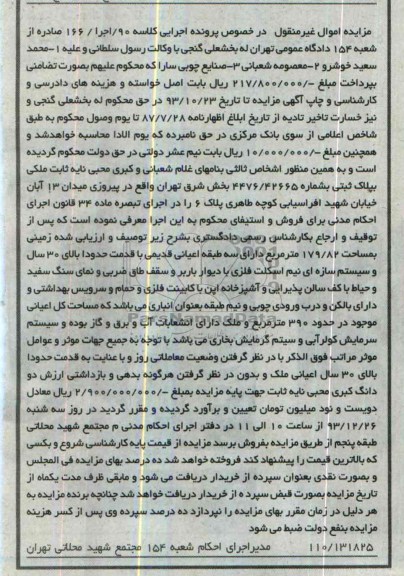 مزایده اموال غیرمنقول در خصوص پرونده اجرایی کلاسه ۹۰/اجرا / ۱۶۶ صادره از
شعبه ۱۵۴ دادگاه عمومی تهران له بخشعلی گنجی با وکالت رسول سلطانی و علیه ۱-محمد
سعید خوشرو ۲-معصومه شعبانی ۳-صنایع چوبی سارا که محکوم علیهم بصورت تضامنی
بپرداخت مبلغ ۲۱۷/۸۰۰/۰۰۰/- ریال بابت اصل خواسته و هزینه های دادرسی و
کارشناسی و چاپ آگهی مزایده تا تاریخ ۹۳/۱۰/۲۳ در حق محکوم له بخشعلی گنجی و
نیز خسارت تاخیر تادیه از تاریخ ابلاغ اظهارنامه ۸۷/۷/۲۸ تا یوم وصول محکوم به طبق
شاخص اعلامی از سوی بانک مرکزی در حق نامبرده که یوم الادا محاسبه خواهدشد و
همچنین مبلغ ۱۰/۰۰۰/۰۰۰/- ریال بابت نیم عشر دولتی در حق دولت محکوم گردیده
است و به همین منظور اشخاص ثالثی بنامهای غلام شعبانی و کبری محبی نایه ثابت ملکی
بپلاک ثبتی بشماره ۴۴۷۶/۴۲۶۶۵ بخش شرق تهران واقع در پیروزی میدان ۱۳ آبان
خیابان شهید افراسیابی کوچه طاهری پلاک ۶ را در اجرای تبصره ماده ۳۴ قانون اجرای
احکام مدنی برای فروش و استیفای محکوم به این اجرا معرفی نموده است که پس از
توقیف و ارجاع بکارشناس رسمی دادگستری بشرح زیر توصیف و ارزیابی شده زمینی
بمساحت ۱۷۹/۸۲ مترمربع دارای سه طبقه اعیانی قدیمی با قدمت حدودا بالای ۳۰ سال
و سیستم سازه ای نیم اسکلت فلزی با دیوار باربر و سقف طاق ضربی و نمای سنگ سفید
و حیاط با کف سالن پذیرایی و آشپزخانه اپن با کابینت فلزی و حمام و سرویس بهداشتی و
دارای بالکن و درب ورودی چوبی و نیم طبقه بعنوان انباری می باشد که مساحت کل اعیانی
موجود در حدود ۳۹۰ مترمربع و ملک دارای انشعابات آب و برق و گاز بوده و سیستم
سرمایش کولرآبی و سیتم گرمایش بخاری می باشد با توجه به جمیع جهات موثر و عوامل
موثر مراتب فوق الذکر با در نظر گرفتن وضعیت معاملاتی روز و با عنایت به قدمت حدودا
بالای ۳۰ سال اعیانی ملک و بدون در نظر گرفتن هرگونه بدهی و بازداشتی ارزش دو
دانگ کبری محبی نایه ثابت جهت پایه مزایده بمبلغ ۲/۹۰۰/۰۰۰/۰۰۰/- ریال معادل
دویست و نود میلیون تومان تعیین و برآورد گردیده و مقرر گردید در روز سه شنبه
۹۳/۱۲/۲۶ از ساعت ۱۰ الی ۱۱ در دفتر اجرای احکام مدنی م مجتمع شهید محلاتی
طبقه پنجم از طریق مزایده بفروش برسد مزایده از قیمت پایه کارشناسی شروع و بکسی
که بالاترین قیمت را پیشنهاد کند فروخته خواهد شد ده درصد بهای مزایده فی المجلس
و بصورت نقدی بعنوان سپرده از خریدار دریافت می شود و مابقی ظرف مدت یکماه از
تاریخ مزایده بصورت قبض سپرده از خریدار دریافت خواهد شد چنانچه برنده مزایده به
هر دلیل در زمان مقرر بهای مزایده را نپردازد ده درصد سپرده وی پس از کسر هزینه
مزایده بنفع دولت ضبط می شود
۱۱۰/۱۳۱۸۲۵ مدیراجرای احکام شعبه ۱۵۴ مجتمع شهید محلاتی تهران